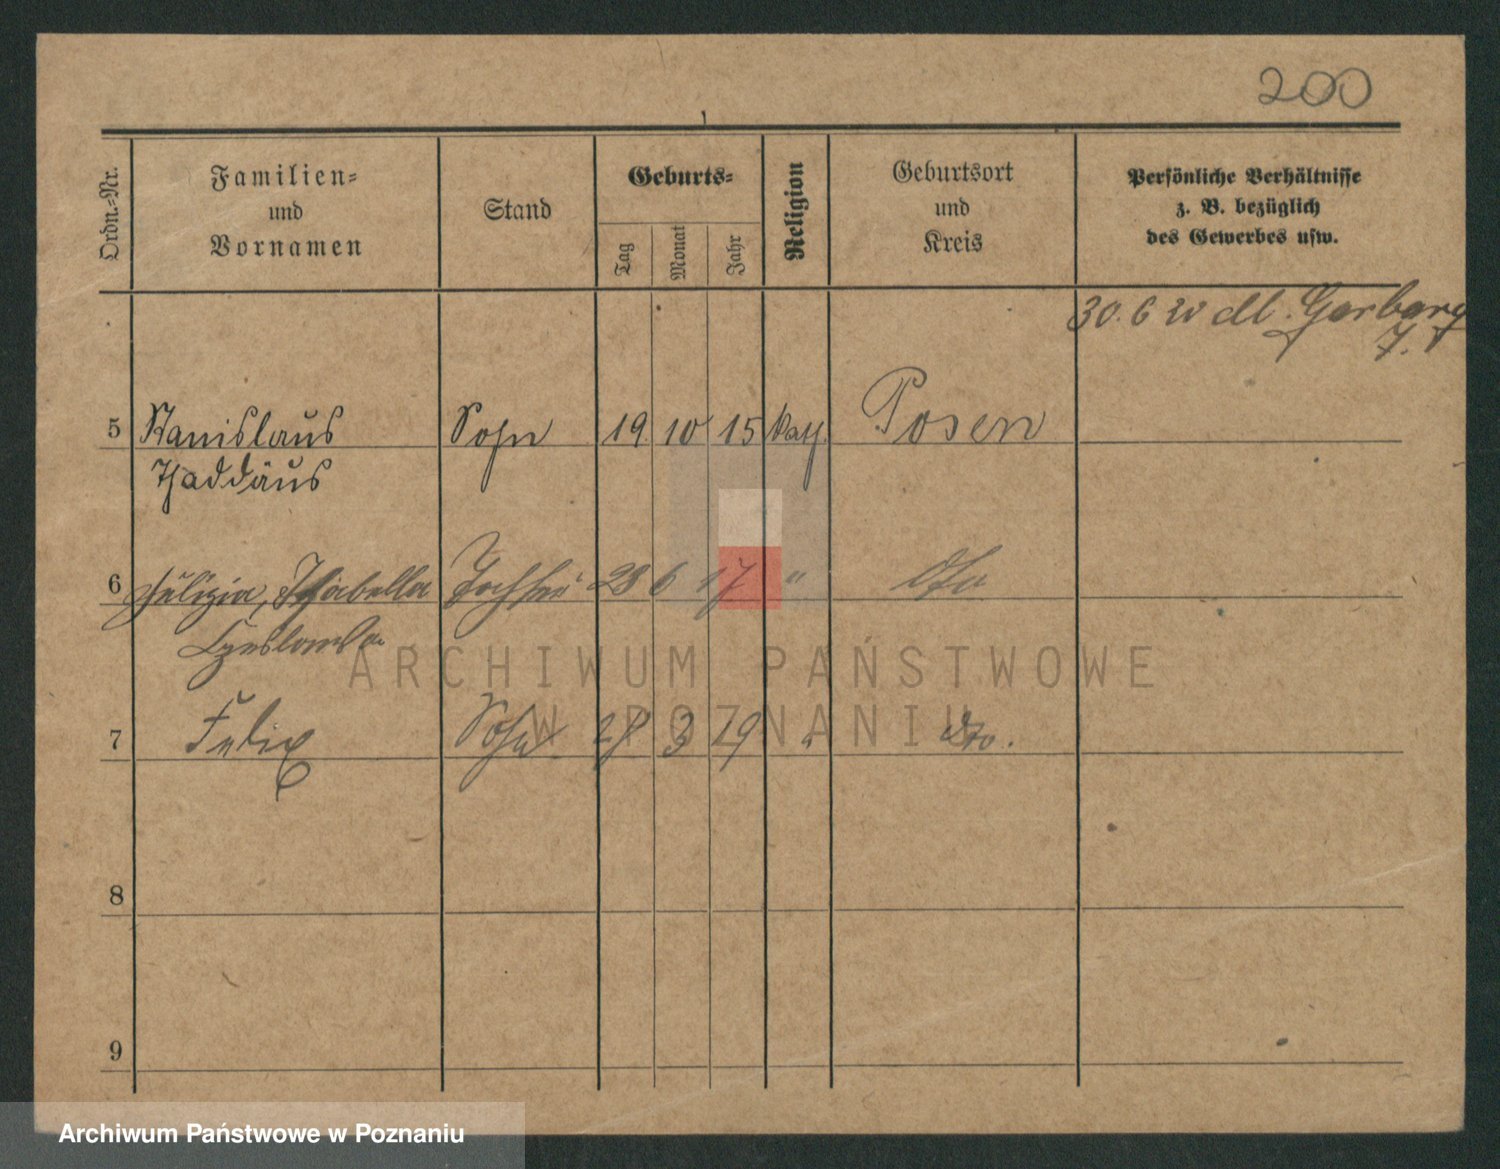 200
Ordn.-Nr.
Familien-
und
Vornamen
Stand
Geburts-
Tag
Monat
Jahr
Religion
Geburtsort
und
Kreis
Persönliche Verhältnisse
z. B. bezüglich
des Gewerbes usw.
30. 6 20 dl. Gerberg
7.
5 Stanislaus Sohn 19. 10 15 kath. Posen
Thaddäus
6 Felizia, Isabella Tochter 28 6 17 " dto
Czeslawa
7 Felix Sohn 28 3 19 " dto.
8
9
ARCHIWUM PAŃSTWOWE
W POZNANIU
Archiwum Państwowe w Poznaniu